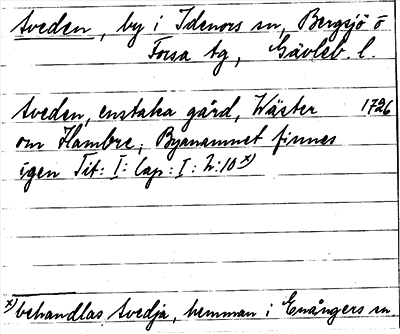 Sveden, by i Idenors sn, Bergsjö o
Forsa tg, Gävleb. l.
Sveden, enstaka gård, Wäster 1726
om Hambre; Byanamnet finnes
igen Tit: I: Cap: I: 2:10 x)
x) behandlas Svedja, hemman i Enångers sn.